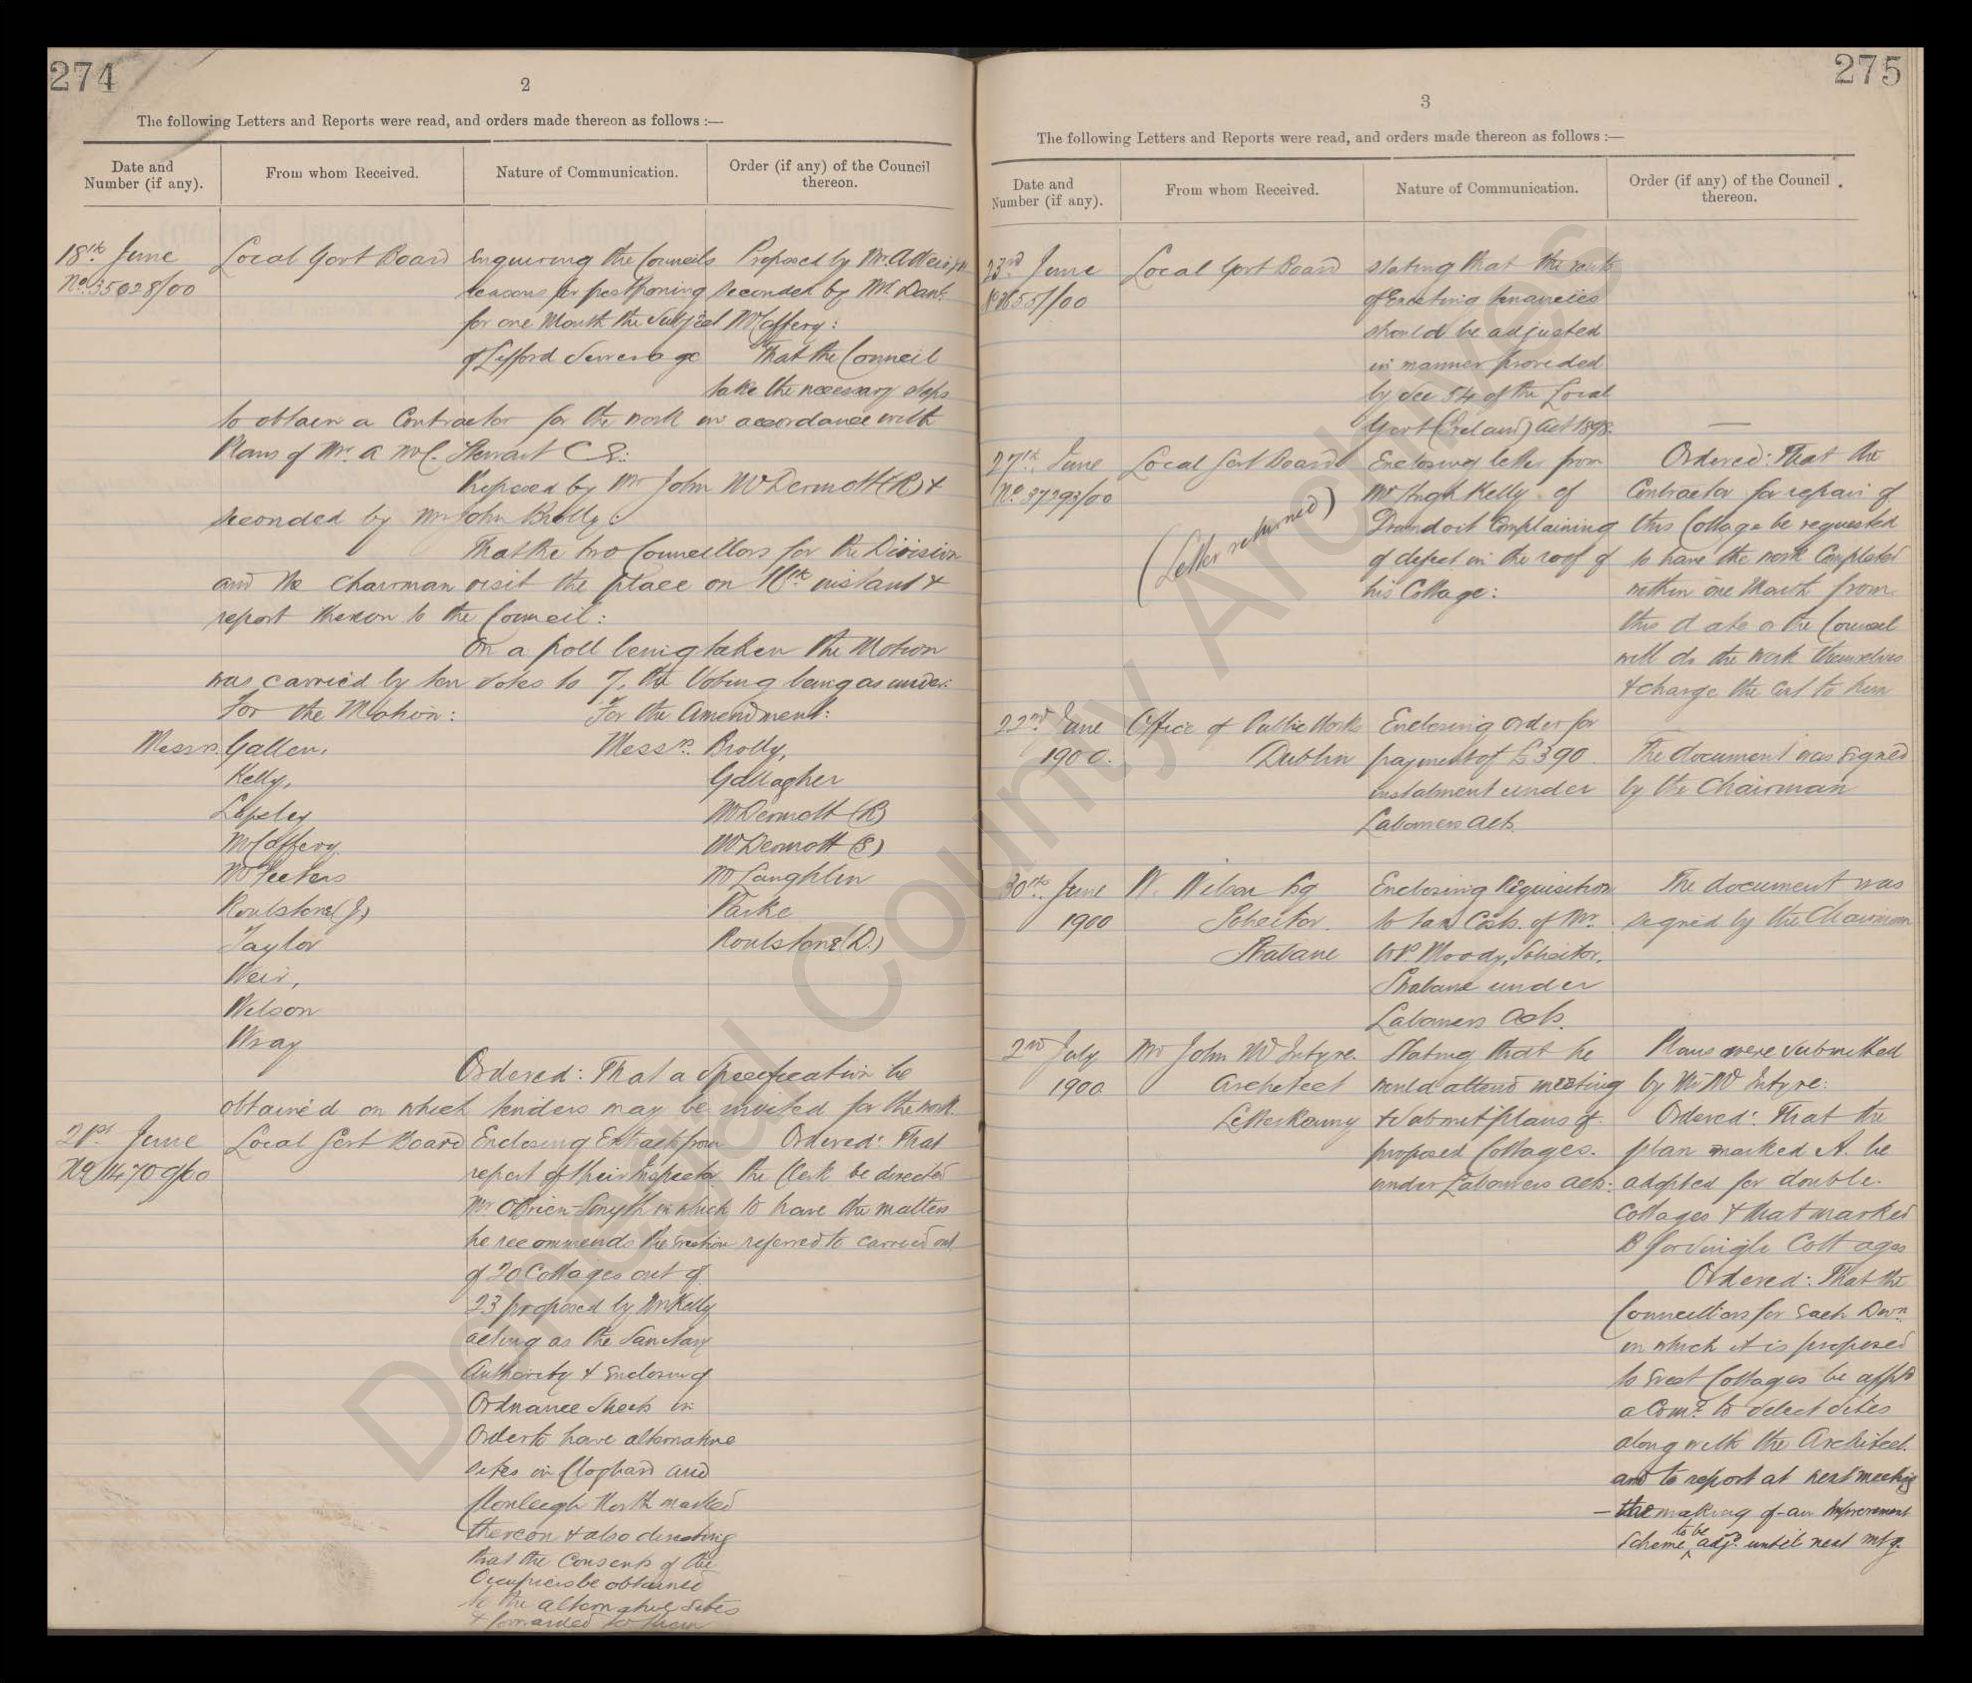 274
2
The following Letters and Reports were read, and orders made thereon as follows :—
Date and
Number (if any).
From whom Received.
Nature of Communication.
Order (if any) of the Council
thereon.
18th June
No. 35028/00
Local Govt Board
Enquiring the Councils
reasons for postponing
for one Month the subject
of Lifford Sewerage
Proposed by Mr. A Weir &
seconded by Mr. Danl.
McCaffery:
That the Council
take the necessary steps
to obtain a Contractor for the work in accordance with
Plans of Mr. A McC. Stewart C E:
Proposed by Mr John McDermott (R) &
seconded by Mr John Brolly:
That the two Councillors for the Division
and the Chairman visit the place on 16th instant &
report thereon to the Council:
On a poll being taken the Motion
was carried by ten votes to 7, the Voting being as under:
For the Motion:
For the Amendment:
Messrs. Gallen,
Kelly,
Lapsley
McCaffery
McFeeters
Roulstone (J)
Taylor
Weir,
Wilson
Wray
Messrs. Brolly,
Gallagher
McDermott (R)
McDermott (S)
McLaughlin
Parke
Roulstone (D.)
Ordered: That a Specification be
obtained on which tenders may be invited for the work.
21st June
Local Govt Board
Enclosing Extract from
report of their Inspector
Mr OBrien-Smyth in which
he recommends the Erection
of 20 Cottages out of
23 proposed by Mr Kelly
acting as the Sanitary
Authority & Enclosing
Ordnance Sheets in
Order to have alternative
sites in Cloghard and
Clonleigh North marked
thereon & also directing
that the Consents of the
Occupiers be obtained
to the alternative Sites
& forwarded to them
Ordered: That
the Clerk be directed
to have the matters
referred to carried out
275
3
The following Letters and Reports were read, and orders made thereon as follows :—
Date and
Number (if any).
From whom Received.
Nature of Communication.
Order (if any) of the Council
thereon.
23rd June
Local Govt Board
stating that the rents
of Existing tenancies
should be adjusted
in manner provided
by Sec 54 of the Local
Govt (Ireland) Act 1898.
—
27th June
No. 37293/00
Local Govt Board
(Letter returned)
Enclosing letter from
Mr Hugh Kelly of
Drumdoit Complaining
of defect in the roof of
his Cottage:
Ordered: That the
Contractor for repair of
this Cottage be requested
to have the work Completed
within one Month from
this date or the Council
will do the work themselves
& charge the Cost to him
22nd June
1900.
Office of Public Works
Dublin
Enclosing order for
payment of £390
instalment under
Labourers Acts.
The document was signed
by the Chairman
30th June
1900
W. Wilson Esq
Solicitor.
Strabane
Enclosing Requisition
to tax Costs. of Mr.
W P. Moody, Solicitor.
Strabane under
Labourers Acts.
The document was
signed by the Chairman
2nd July
1900
Mr John McIntyre
Architect
Letterkenny
Stating that he
would attend meeting
& submit plans of
proposed Cottages.
under Labourers Acts:
Plans were submitted
by Mr McIntyre:
Ordered: That the
plan marked A. be
adopted for double.
Cottages & that marked
B for Single Cottages
Ordered: That the
Councillors for Each Divn.
in which it is proposed
to Erect Cottages be apptd
a Come. to Select Sites
along with the Architect.
and to report at next meeting
— the making of an Improvement
Scheme to be adjd. until next mtg.
Donegal County Archives